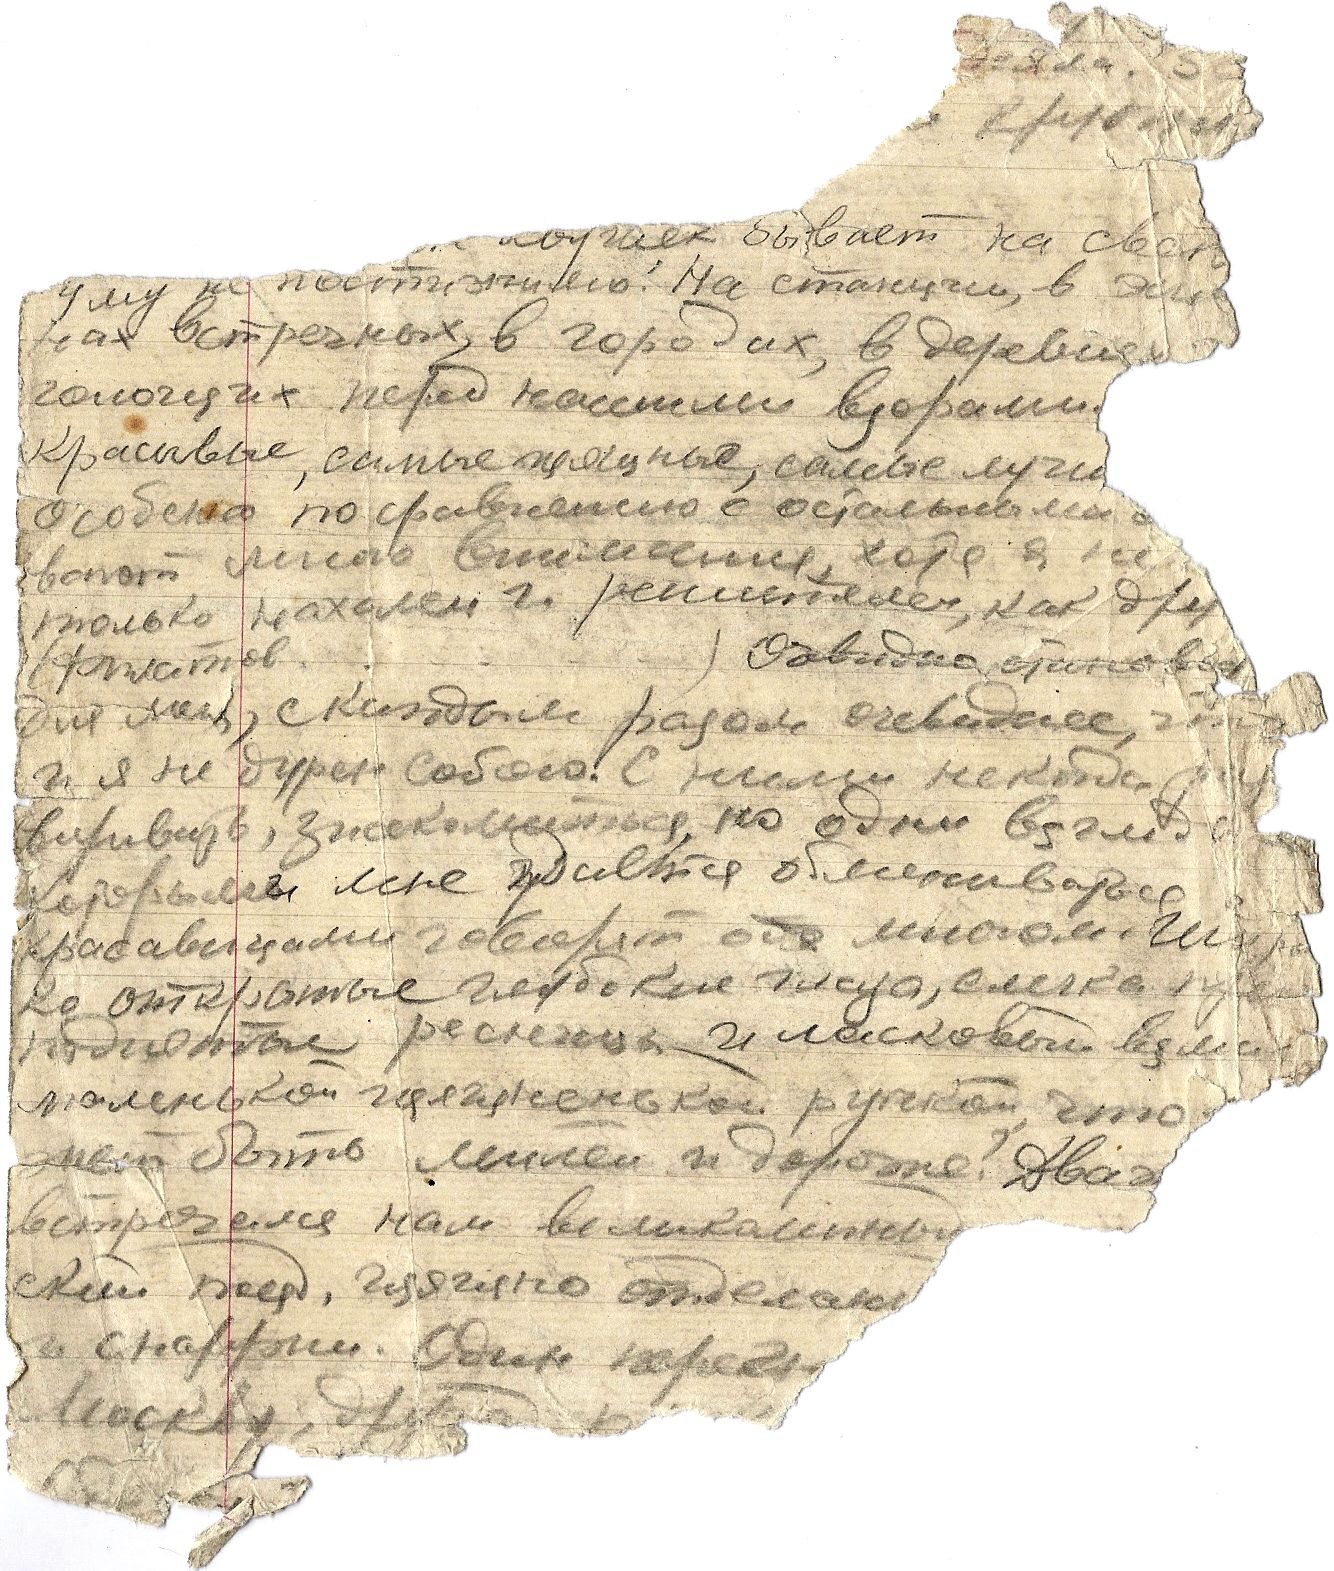 бывает на свет
уму не постижимо! На станции, в
нах встречных, в городах, в деревнях
голочущих перед нашими взорами.
красивые, самые изящные, самые лучш
особенно по сравнению с остальными
вают мною внимания, хотя я не
только нахален и решителен, как дру
(Филатов ) Очевидно становит
для меня, с каждым разом очевиднее, что
и я не дурен собою. С ними некогда раз
вириваь, знакомиться, но одни взгляды
которыми мне удается обмениваться с
красавицами говорят обо многом. Широ
ко открытые глубокие глаза, слегка при
поднятые ресницы и ласковый взмах
маленькой изященькой ручкой, что
жет быть милей и дороже! Дваж
встречался нам великолепный
ский поезд, изящно отделан
и снаружи. Один
Москву, другой